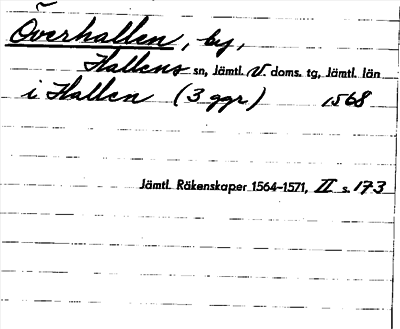 Överhallen, by,
Hallens sn, Jämtl. V. doms. tg, Jämtl. län
i Hallen (3 ggr) 1568
Jämtl. Räkenskaper 1564-1571, II s. 173